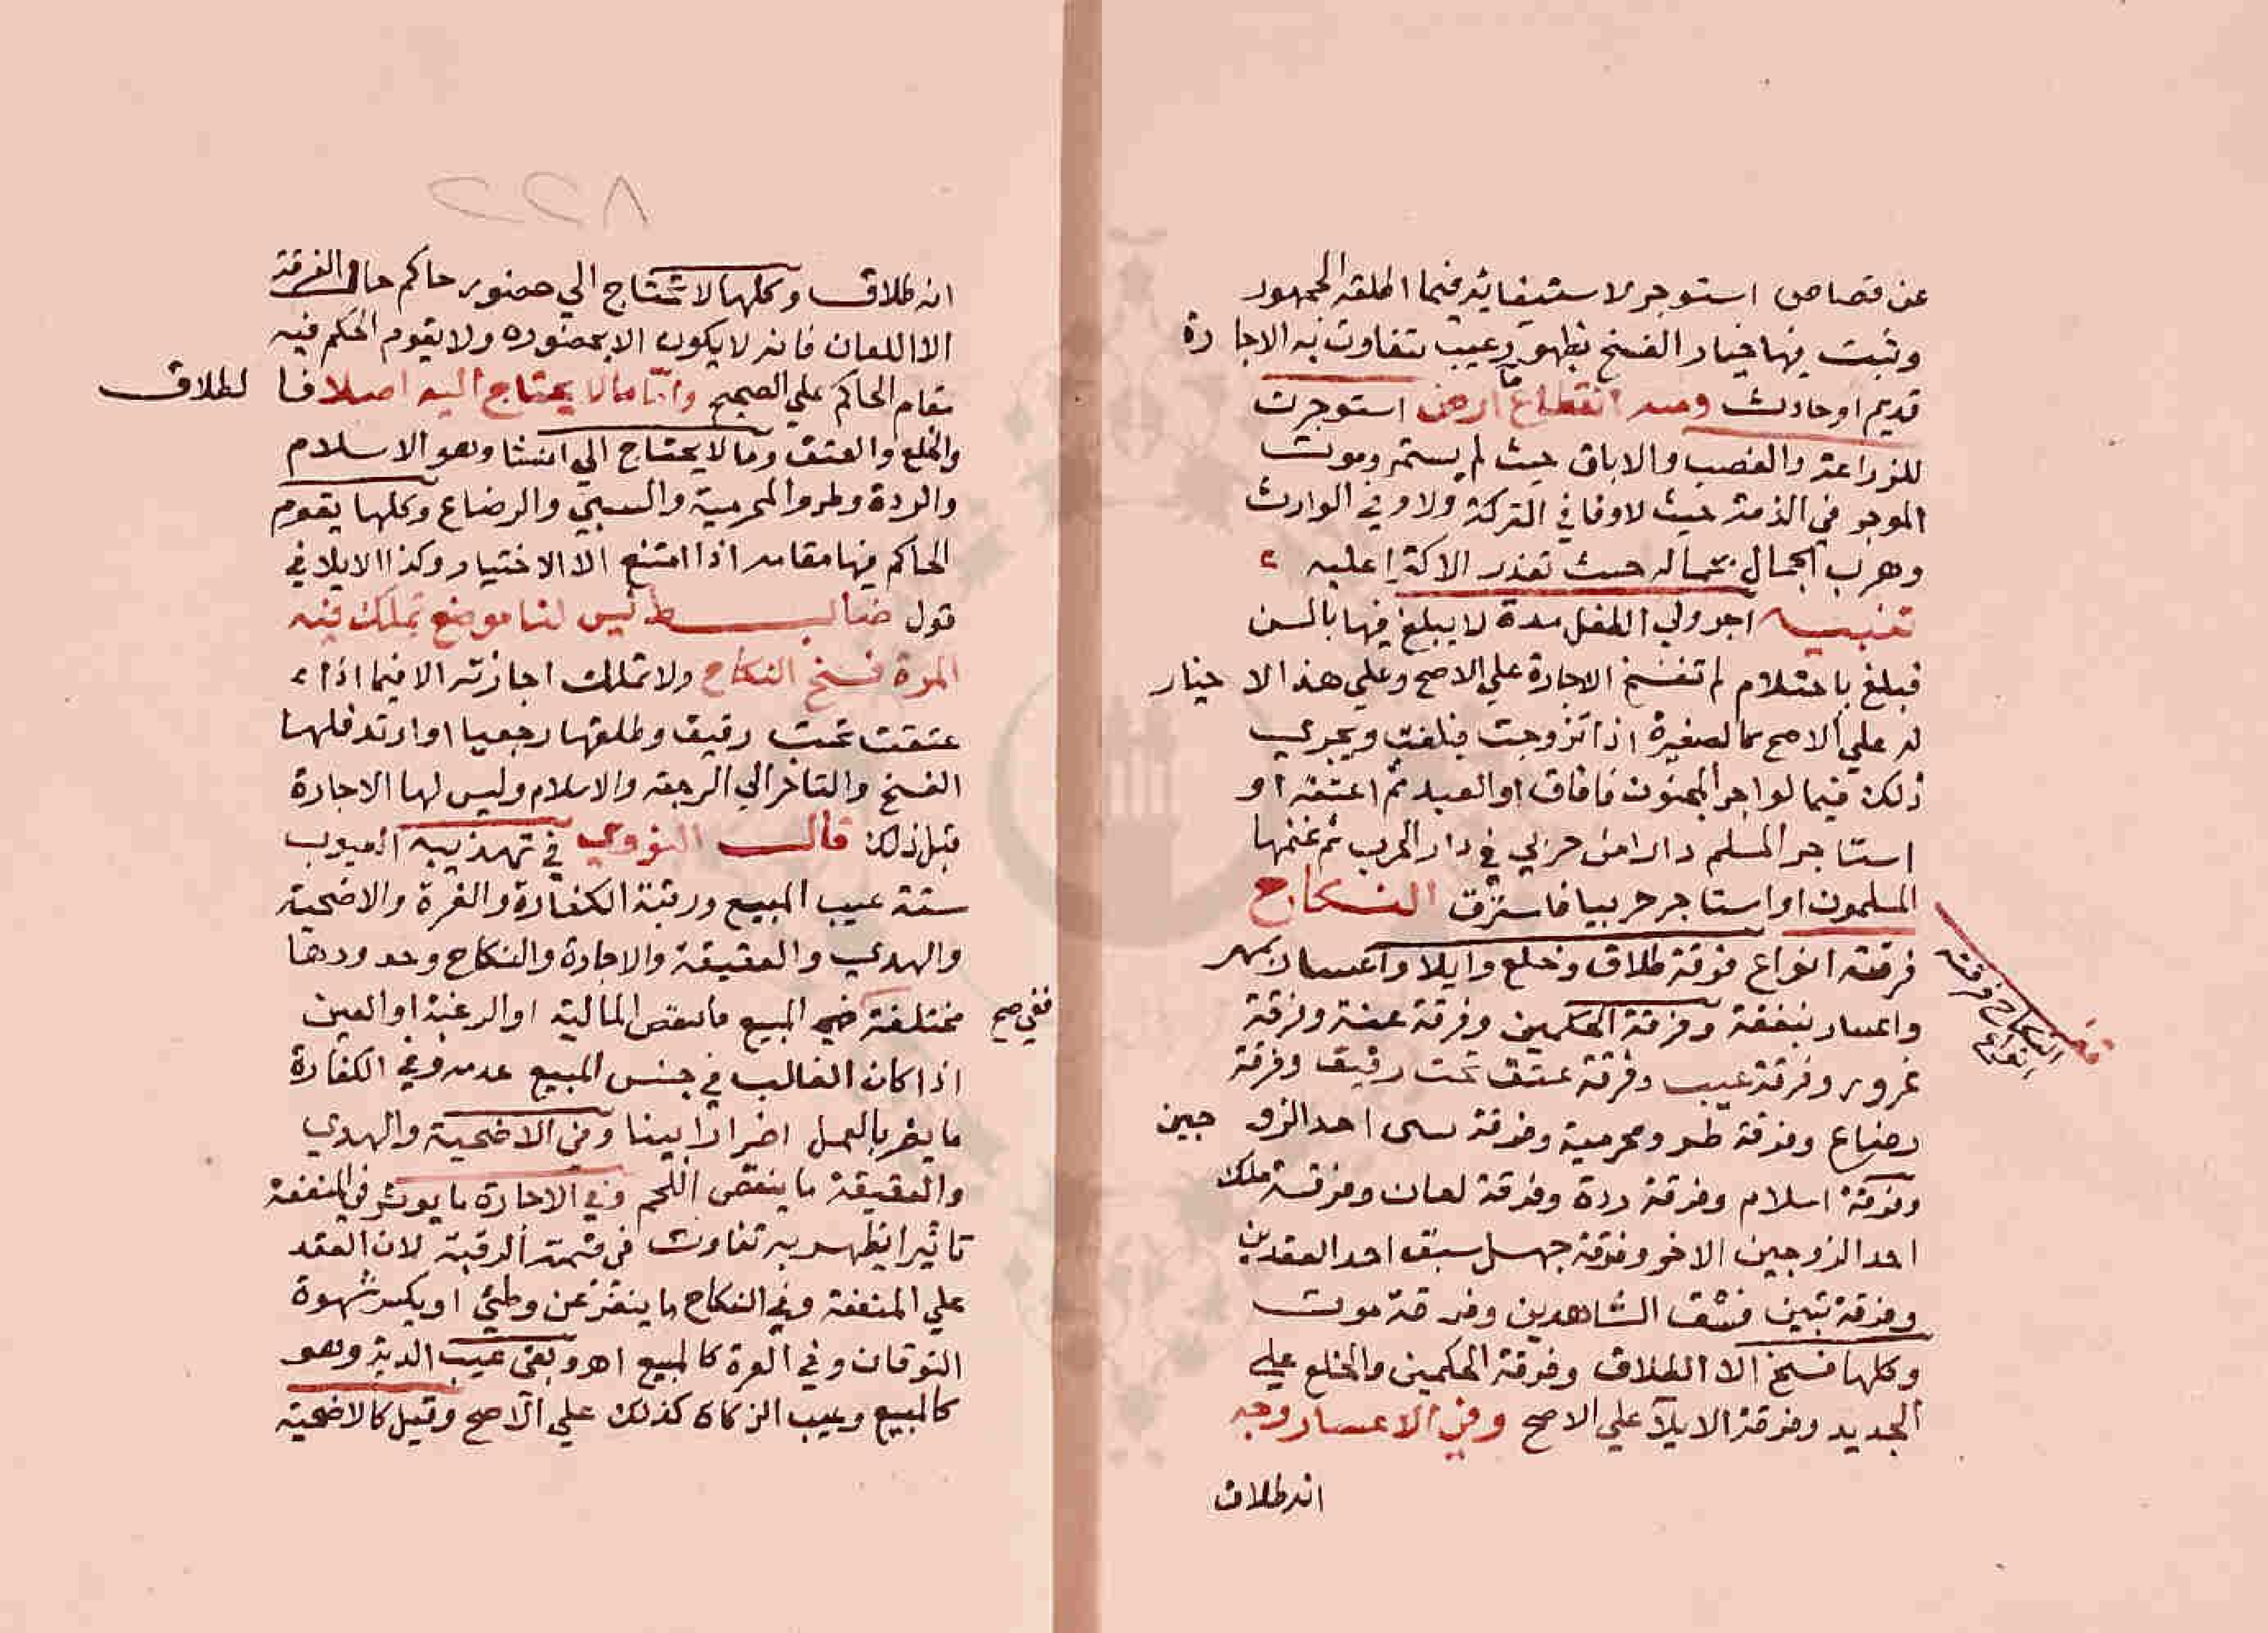 عن قصاص استوجر لاستيفائه فيما اطلقه الجمهور
وثبت فيها خيار الفسخ بظهور عيب تتفاوت به الاجا رة
قديم او حادث ومنه انقطاع ما ارض استوجرت
للزراعة والغصب والاباق حيث لم يستمر وموت
الموجر في الذمة حيث لا وفا في التركة ولا وفي الوارث
وهرب الجمال بجماله حيث تعذر الاكترا عليه
تنبيه اجر ولي الطفل مدة لا يبلغ فيها بالسن
فبلغ باحتلام لم تنفسخ الاجارة علي الاصح وعلي هذا لا خيار
له علي الاصح كالصغيرة اذا تزوجت فبلغت ويجري
ذلك فيما لو اجر المجنون فافاق او العبد ثم اعتقه او
استاجر المسلم دارا من حربي في دار الحرب ثم غنمها
المسلمون او استاجر حربيا فاسترق النكاح
فرقته انواع فرقة طلاق وخلع وايلا واعسار بمهر
واعسار بنفقة وفرقة الحكمين وفرقة عنة وفرقة
غرور وفرقة عيب وفرقة عتق تحت رقيق وفرقة
رضاع وفرقة طرو محرمية وفرقة سبي احد الزو جين
وفرقة اسلام وفرقة ردة وفرقة لعان وفرقة ملك
احد الزوجين الاخر وفرقة جهل سبق احد العقدين
وفرقة تبين فسق الشاهدين وفرقة موت
وكلها فسخ الا الطلاق وفرقة الحكمين والخلع علي
الجديد وفرقة الايلا علي الاصح وفي الاعسار وجه
انه طلاق
النكاح فرقته
انواع
٨٢٢
انه طلاق وكلها لا تحتاج الي حضور حاكم حال الفرقة
الا اللعان فانه لا يكون الا بحضوره ولا يقوم المحكم فيه
مقام الحاكم علي الصحيح واما ما لا يحتاج اليه اصلا فا لطلاق
والخلع والعتق وما لا يحتاج الي انشا وهو الاسلام
والردة وطرو المحرمية والسبي والرضاع وكلها يقوم
الحاكم فيها مقامه اذا امتنع الا الاختيار وكذا الايلا في
قول ضابط ليس لنا موضع تملك فيه
المرة فسخ النكاح ولا تملك اجازته الا فيما اذا
عتقت تحت رقيق وطلقها رجعيا او ارتد فلها
الفسخ والتاخر الي الرجعة والاسلام وليس لها الاجازة
قبل ذلك قال النووي في تهذيبه العيوب
ستة عيب المبيع ورقبة الكفارة والغرة والاضحية
والهدي والعقيقة والاجارة والنكاح وحدودها
مختلفة ففي المبيع ما ينقص المالية او الرغبة او العين
ففي صح
اذا كان الغالب في جنس المبيع عدمه وفي الكفارة
ما يضر بالعمل اضرارا بينا وفي الاضحية والهدي
والعقيقة ما ينقص اللحم وفي الاجارة ما يوثر في المنفعة
تاثيرا يظهر به تفاوت في قيمة الرقبة لان العقد
علي المنفعة وفي النكاح ما ينفر عن وطئي او يكسر شهوة
التوقان وفي الغرة كالمبيع اهـ وبقي عيب الدية وهو
كالمبيع وعيب الزكاة كذلك علي الاصح وقيل كالاضحية